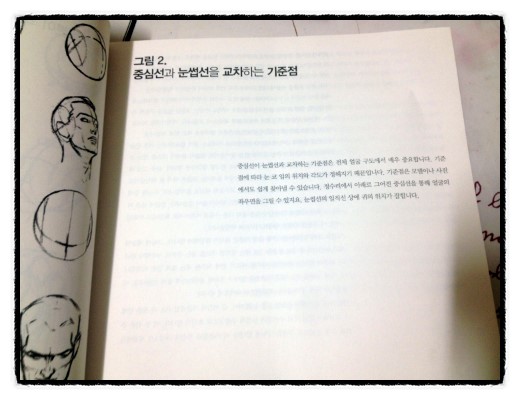 그림 2.
중심선과 눈썹선을 교차하는 기준점
중심선이 눈썹선과 교차하는 기준점은 전체 얼굴 구도에서 매우 중요합니다. 기준
점에 따라 눈 코 입의 위치와 각도가 정해지기 때문입니다. 기준점은 모델이나 사진
에서도 쉽게 찾아낼 수 있습니다. 정수리에서 아래로 그어진 중심선을 통해 얼굴의
좌우면을 그릴 수 있지요. 눈썹선의 일직선 상에 귀의 위치가 잡힙니다.